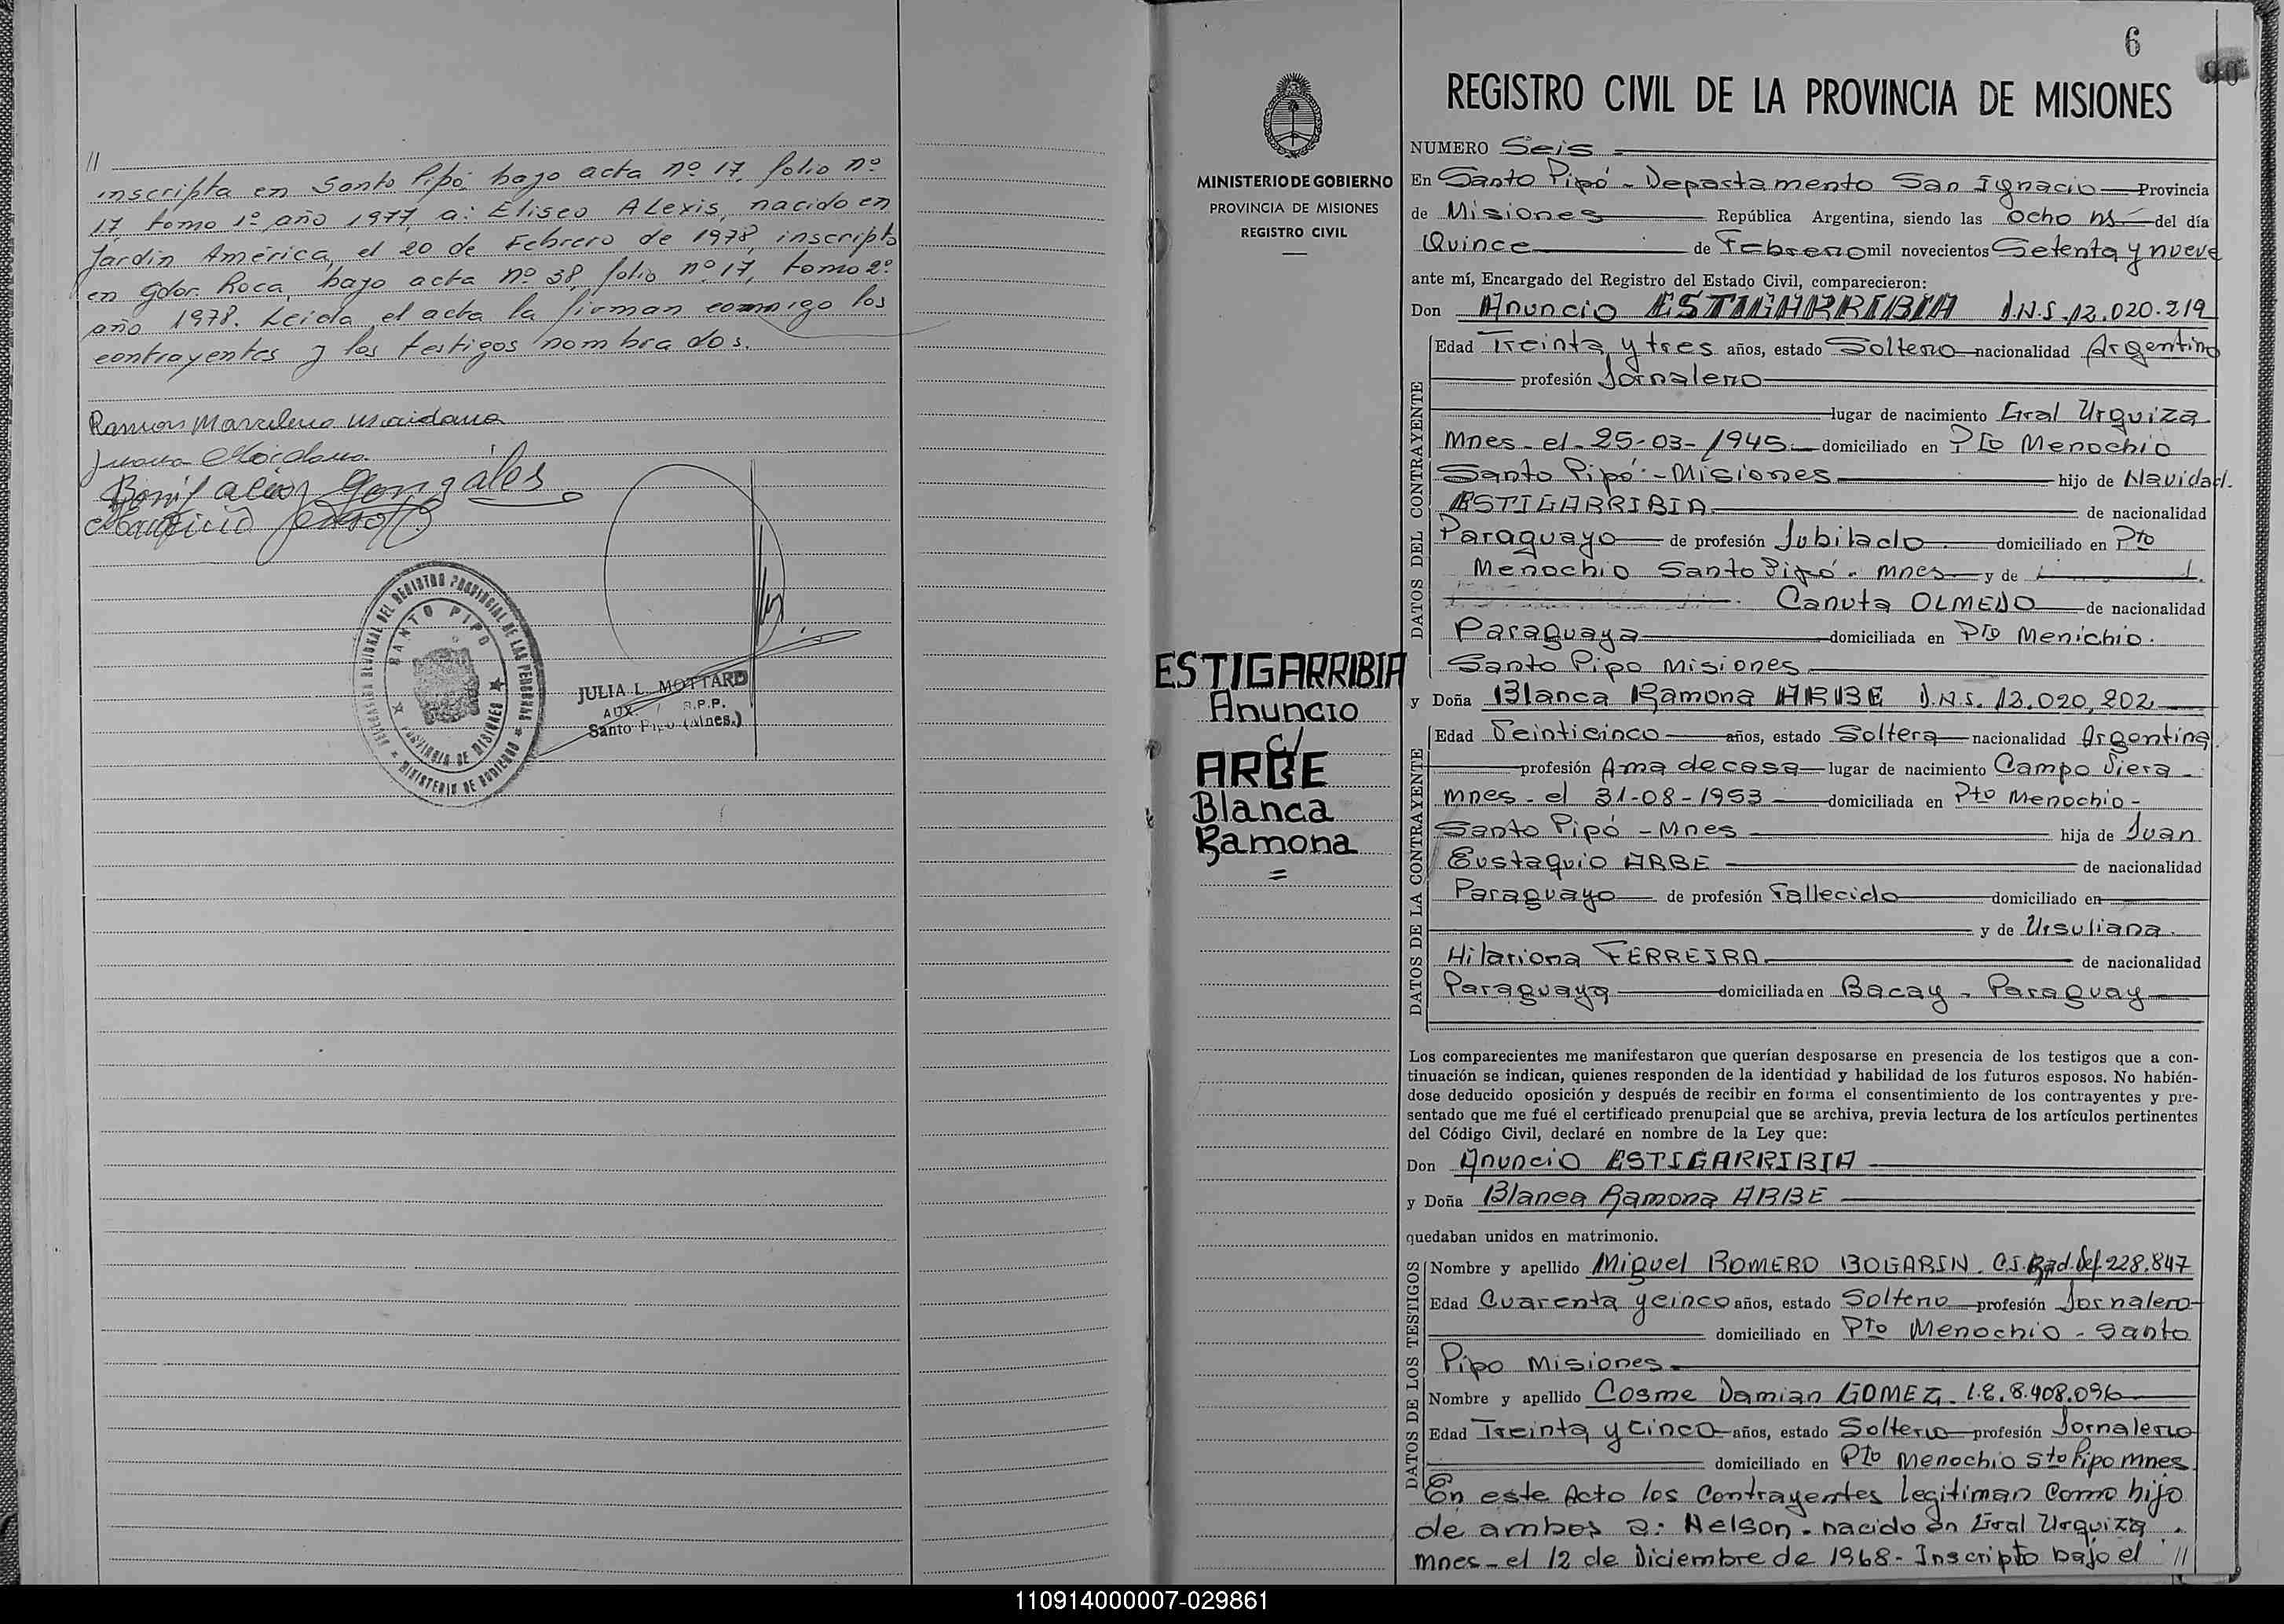 //
inscripta en Santo Pipó, bajo acta nº 17, folio nº
17 tomo 1º año 1977, a: Eliseo ALexis, nacido en
Jardin América, el 20 de Febrero de 1978, inscripto
en Gdor. Roca, bajo acta nº 38, folio nº 17, tomo 2º
año 1978. Leida el acta la firman conmigo los
contrayentes y los testigos nombrados.
Ramon Marcelino Maidana
Juana Maidana
Bonifacia Gonzáles
REGISTRO PROVINCIAL DE LAS PERSONAS
SANTO PIPO
PROVINCIA DE MISIONES
MINISTERIO DE GOBIERNO
JULIA L. MOTTARD
AUX. R.P.P.
Santo Pipó (Mnes.)
MINISTERIO DE GOBIERNO
PROVINCIA DE MISIONES
REGISTRO CIVIL
ESTIGARRIBIA
Anuncio
c/
ARBE
Blanca
Ramona
=
6
90
REGISTRO CIVIL DE LA PROVINCIA DE MISIONES
NUMERO Seis
En Santo Pipó - Departamento San Ignacio Provincia
de Misiones República Argentina, siendo las Ocho hs del día
Quince de Febrero mil novecientos Setenta y nueve
ante mí, Encargado del Registro del Estado Civil, comparecieron:
Don Anuncio ESTIGARRIBIA D.N.I. 12.020.219
DATOS DEL CONTRAYENTE
Edad Treinta y tres años, estado Soltero nacionalidad Argentino
profesión Jornalero
lugar de nacimiento Gral Urquiza
Mnes - el - 25-03-1945 domiciliado en Pto Menochio
Santo Pipó - Misiones hijo de Navidad
ESTIGARRIBIA de nacionalidad
Paraguayo de profesión Jubilado domiciliado en Pto
Menochio Santo Pipó - Mnes y de
Canuta OLMEDO de nacionalidad
Paraguaya domiciliada en Pto Menichio
Santo Pipo Misiones
y Doña Blanca Ramona ARBE D.N.I. 12.020.202
DATOS DE LA CONTRAYENTE
Edad Veinticinco años, estado Soltera nacionalidad Argentina
profesión Ama de casa lugar de nacimiento Campo Viera
Mnes - el 31-08-1953 domiciliada en Pto Menochio -
Santo Pipó - Mnes hija de Juan
Eustaquio ARBE de nacionalidad
Paraguayo de profesión Fallecido domiciliado en
y de Ursuliana
Hilariona FERREIRA de nacionalidad
Paraguaya domiciliada en Bacay - Paraguay
Los comparecientes me manifestaron que querían desposarse en presencia de los testigos que a con-
tinuación se indican, quienes responden de la identidad y habilidad de los futuros esposos. No habién-
dose deducido oposición y después de recibir en forma el consentimiento de los contrayentes y pre-
sentado que me fué el certificado prenupcial que se archiva, previa lectura de los artículos pertinentes
del Código Civil, declaré en nombre de la Ley que:
Don Anuncio ESTIGARRIBIA
y Doña Blanca Ramona ARBE
quedaban unidos en matrimonio.
DATOS DE LOS TESTIGOS
Nombre y apellido Miguel ROMERO BOGARIN. C.I. Rad. Def. 228.847
Edad Cuarenta y cinco años, estado Soltero profesión Jornalero
domiciliado en Pto Menochio - Santo
Pipo Misiones
Nombre y apellido Cosme Damian GOMEZ. L.E. 8.408.096
Edad Treinta y Cinco años, estado Soltero profesión Jornalero
domiciliado en Pto Menochio Sto Pipo Mnes
En este Acto los Contrayentes Legitiman como hijo
de ambos a: Nelson - nacido en Gral Urquiza
Mnes - el 12 de Diciembre de 1968 - Inscripto bajo el //
110914000007-029861